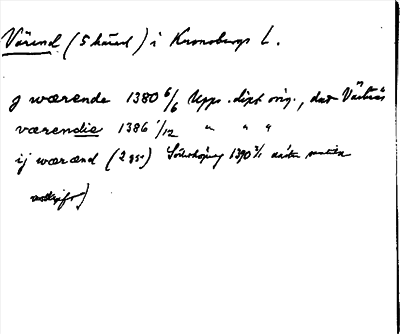 Värend (5 härad) i Kronobergs L.
g wærende 1380 6/6 Upps. dipl. orig., dat Västerås
værendie 1386 1/12 " " "
ij wærænd (2 gr) Söderköping 1390 3/1